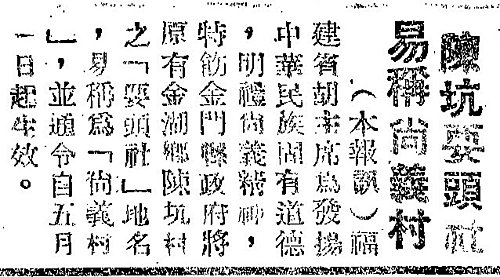 陳坑耍頭社
易稱尚義村
（本報訊）福
建省胡主席為發揚
中華民族固有道德
，明禮尚義精神，
特飭金門縣政府將
原有金湖鄉陳坑村
之「耍頭社」地名
，易稱為「尚義村
」，並通令自五月
一日起生效。